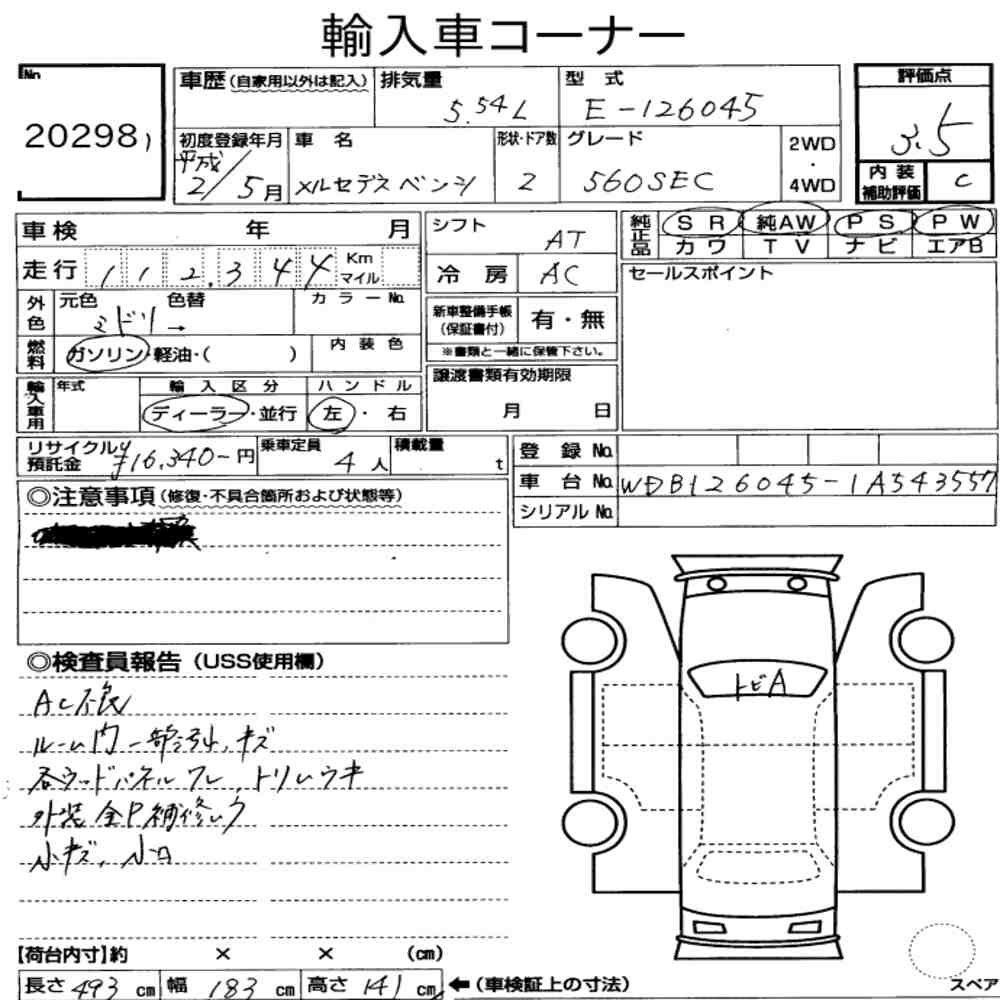 輸入車コーナー
No
20298
車歴(自家用以外は記入) 排気量 5.54L 型式 E-126045
評価点 3.5
初度登録年月 平成 2/5月
車名 メルセデスベンツ
形状・ドア数 2
グレード 560SEC
2WD・4WD
内装補助評価 C
車検 年 月
シフト AT
純正品 SR 純AW PS PW
カワ TV ナビ エアB
走行 112,344 Km マイル
冷房 AC
セールスポイント
外色 元色 ミドリ → 色替 カラーNo.
新車整備手帳(保証書付) 有・無
※書類と一緒に保管下さい。
燃料 ガソリン・軽油・( ) 内装色
譲渡書類有効期限 月 日
輸入車用 年式 輸入区分 ディーラー・並行 ハンドル 左・右
リサイクル預託金 ¥16,340-円 乗車定員 4人 積載量 t
登録No.
車台No. WDB126045-1A543557
シリアルNo.
◎注意事項(修復・不具合箇所および状態等)
◎検査員報告(USS使用欄)
AC不良
ルーム内一部 キズ
各ウッドパネルワレ、トリムウキ
外装全P補修
小キズ、小凹
トビA
【荷台内寸】約 × × (cm)
長さ493cm 幅183cm 高さ141cm ←(車検証上の寸法)
スペア